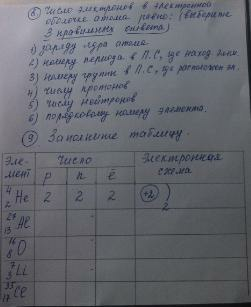 ⑧ Число электронов в электронной
оболочке атома равно: (выберите
3 правильных ответа)
1) заряду ядра атома
2) номеру периода в П.С, где наход. элем.
3) номеру группы в П.С, где расположен эл.
4) числу протонов
5) числу нейтронов
6) порядковому номеру элемента.
⑨ Заполните таблицу.
Элемент Число Электронная схема
p n ē
4 2 He 2 2 2 +2 ) 2
27 13 Al
16 8 O
7 3 Li
35 17 Cl